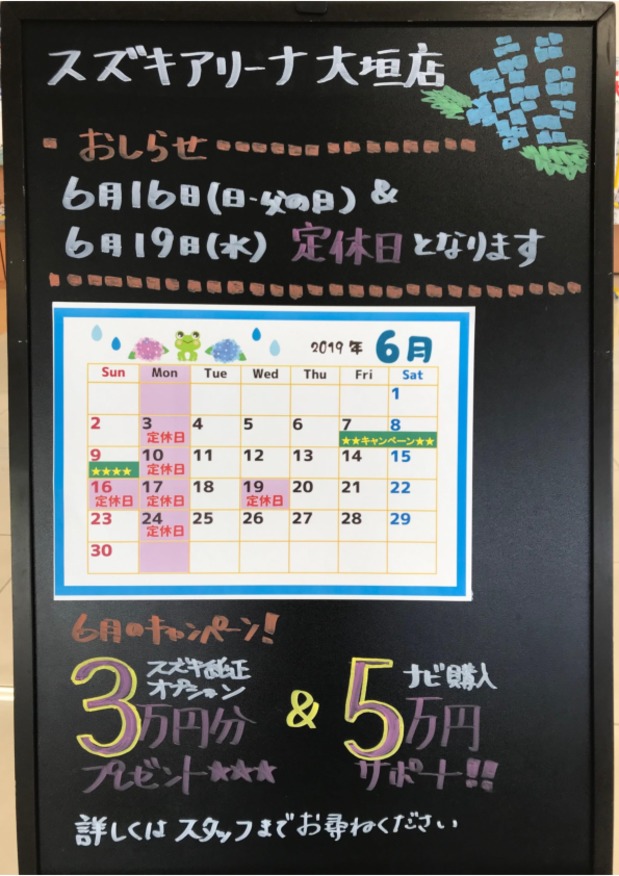 スズキアリーナ 大垣店
おしらせ
6月16日(日・父の日) &
6月19日(水) 定休日となります
2019年 6月
Sun Mon Tue Wed Thu Fri Sat
1
2 3 4 5 6 7 8
定休日 ★★キャンペーン★★
9 10 11 12 13 14 15
★★★★ 定休日
16 17 18 19 20 21 22
定休日 定休日 定休日
23 24 25 26 27 28 29
定休日
30
6月のキャンペーン!
スズキ純正 ナビ購入
オプション
3万円分 & 5万円
プレゼント★★★ サポート!!
詳しくは スタッフまでお尋ねください